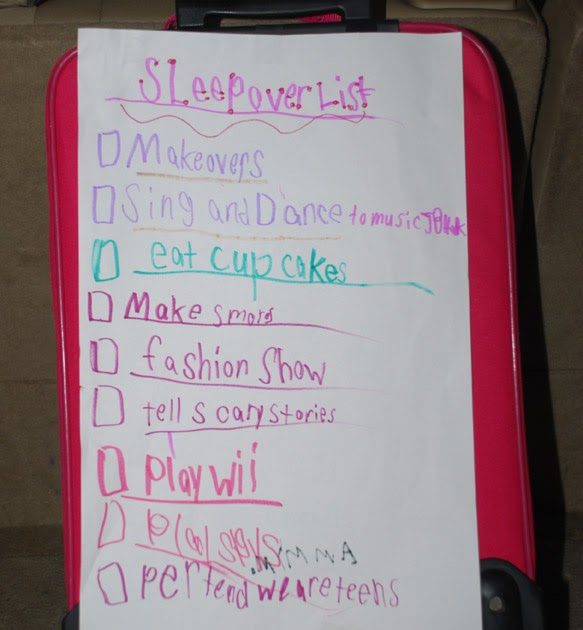 SLeepover List
Makeovers
Sing and Dance to music
eat cup cakes
Make smores
fashion Show
tell scary stories
play wii
play spys
pertend we are teens